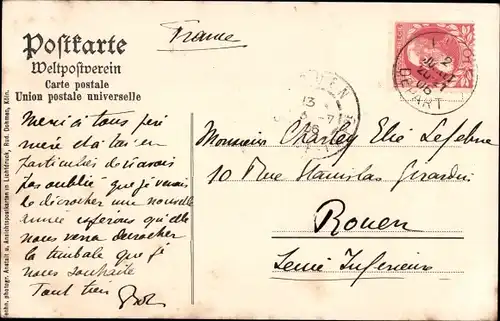 Postkarte
Weltpostverein
Carte postale
Union postale universelle
France
DEPART
Merci à tous
pas oublié que je venais
de décrocher une nouvelle
année espérons qu'elle
nous verra décrocher
la timbale que je
nous souhaite
Tout tien
Monsieur Charley Elie Lefebvre
10 Rue Stanislas Girardin
Rouen
Seine Inférieure
Anstalt u. Ansichtspostkarten in Lichtdruck, Rud. Dohmen, Köln.